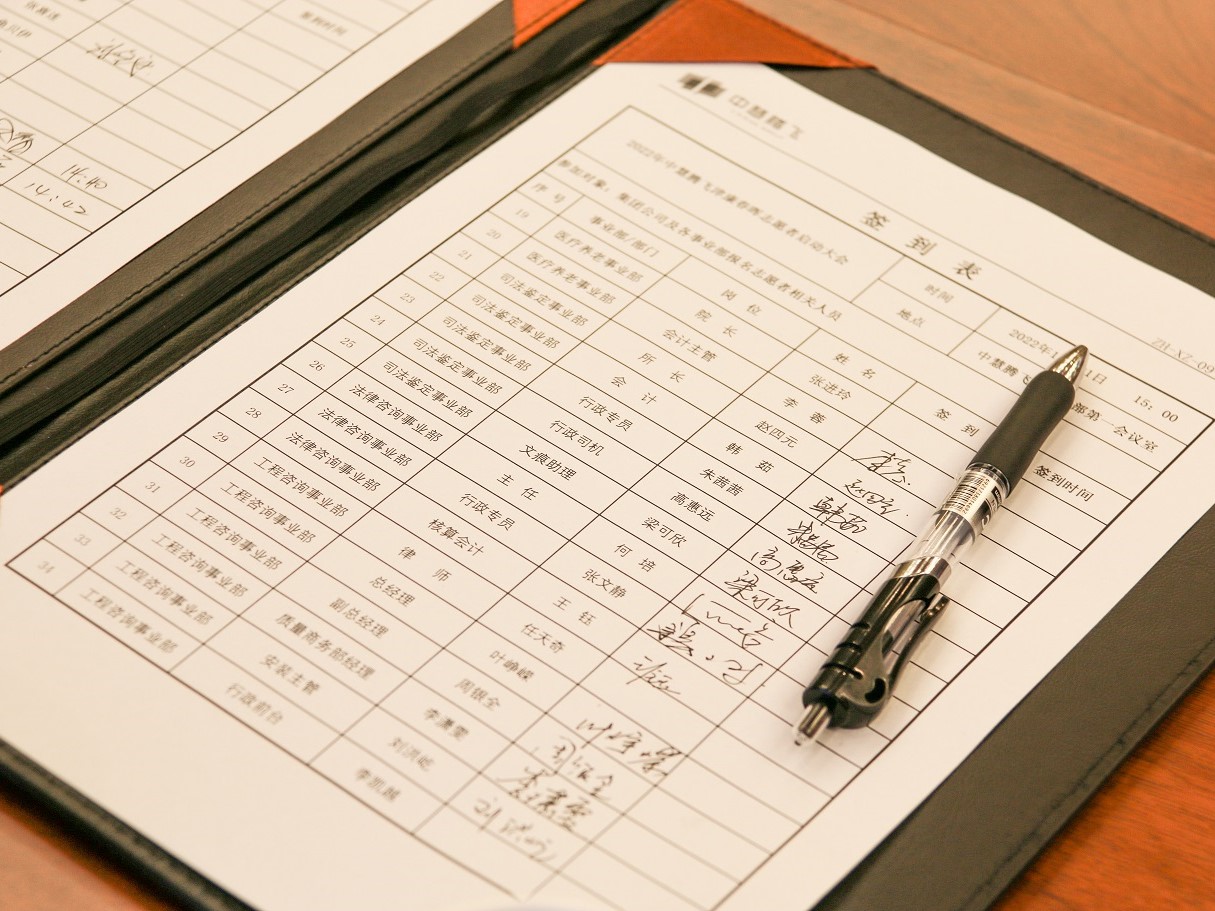 张真透
签到时间
14:40
14:42
中慧腾飞
签 到 表
ZH-XZ-09
2022年中慧腾飞 志愿者启动大会 时间 2022年1 1日 15：00
参加对象：集团公司及各事业部报名志愿者相关人员 地点 中慧腾飞 部第一会议室
序号 事业部/部门 岗 位 姓 名 签 到 签到时间
19 医疗养老事业部 院 长 张进玲
20 医疗养老事业部 会计主管 李 蓉
21 司法鉴定事业部 所 长 赵四元 赵四元
22 司法鉴定事业部 会 计 韩 茹 韩茹
23 司法鉴定事业部 行政专员 朱茜茜
24 司法鉴定事业部 行政司机 高惠远 高惠远
25 司法鉴定事业部 文痕助理 梁可欣 梁可欣
26 法律咨询事业部 主 任 何 培
27 法律咨询事业部 行政专员 张文静
28 法律咨询事业部 核算会计 王 钰
29 律 师 任天奇
30 工程咨询事业部 总经理 叶峥嵘 叶峥嵘
31 工程咨询事业部 副总经理 周银全 周银全
32 工程咨询事业部 质量商务部经理 李潇雯 李潇雯
33 工程咨询事业部 安装主管 刘洪屹 刘洪屹
34 工程咨询事业部 行政前台 李凯越